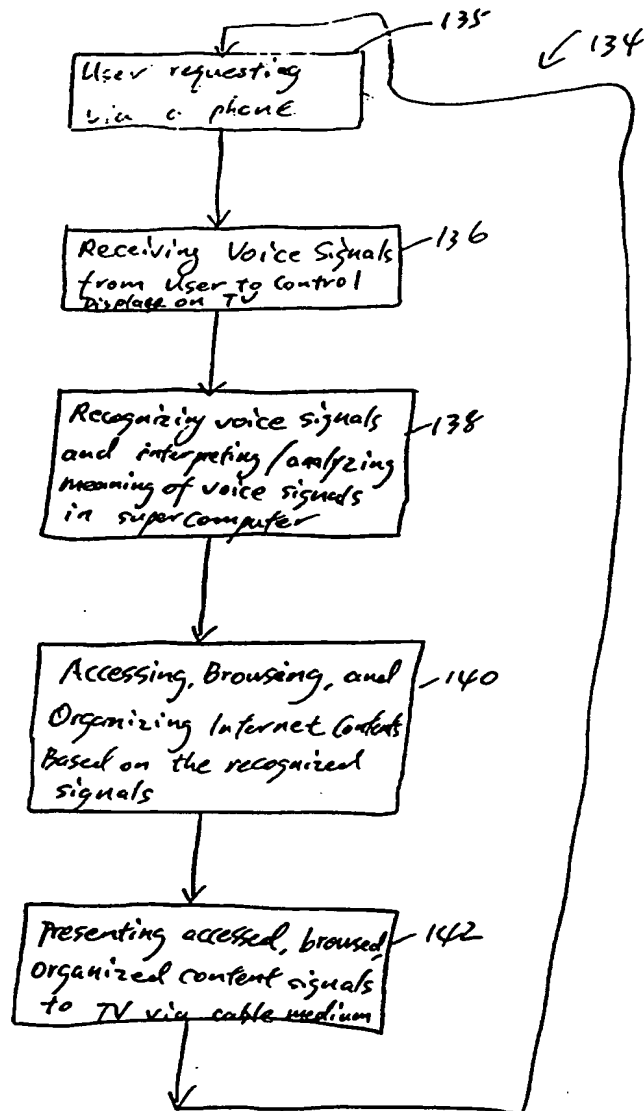 135
134
User requesting
via a phone
136
Receiving Voice Signals
from User to Control
on TV
138
Recognizing voice signals
and interpreting/analyzing
meaning of voice signals
in supercomputer
140
Accessing, Browsing, and
Organizing Internet Contents
Based on the recognized
signals
142
Presenting accessed, browsed,
organized content signals
to TV via cable medium